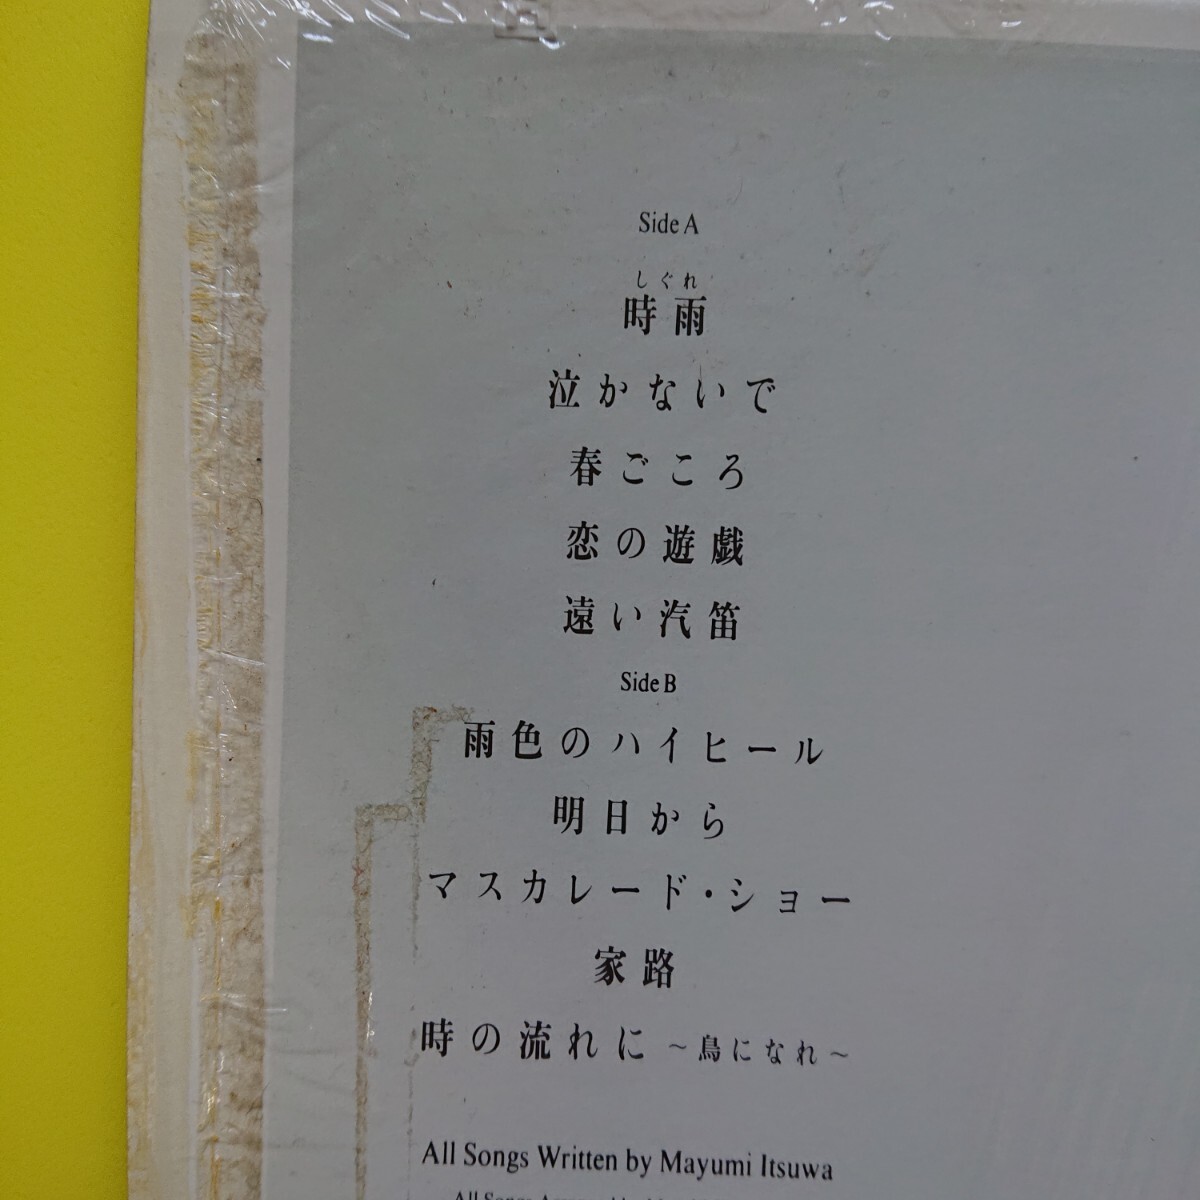 Side A
しぐれ
時雨
泣かないで
春ごころ
恋の遊戯
遠い汽笛
Side B
雨色のハイヒール
明日から
マスカレード・ショー
家路
時の流れに ～鳥になれ～
All Songs Written by Mayumi Itsuwa
All Songs